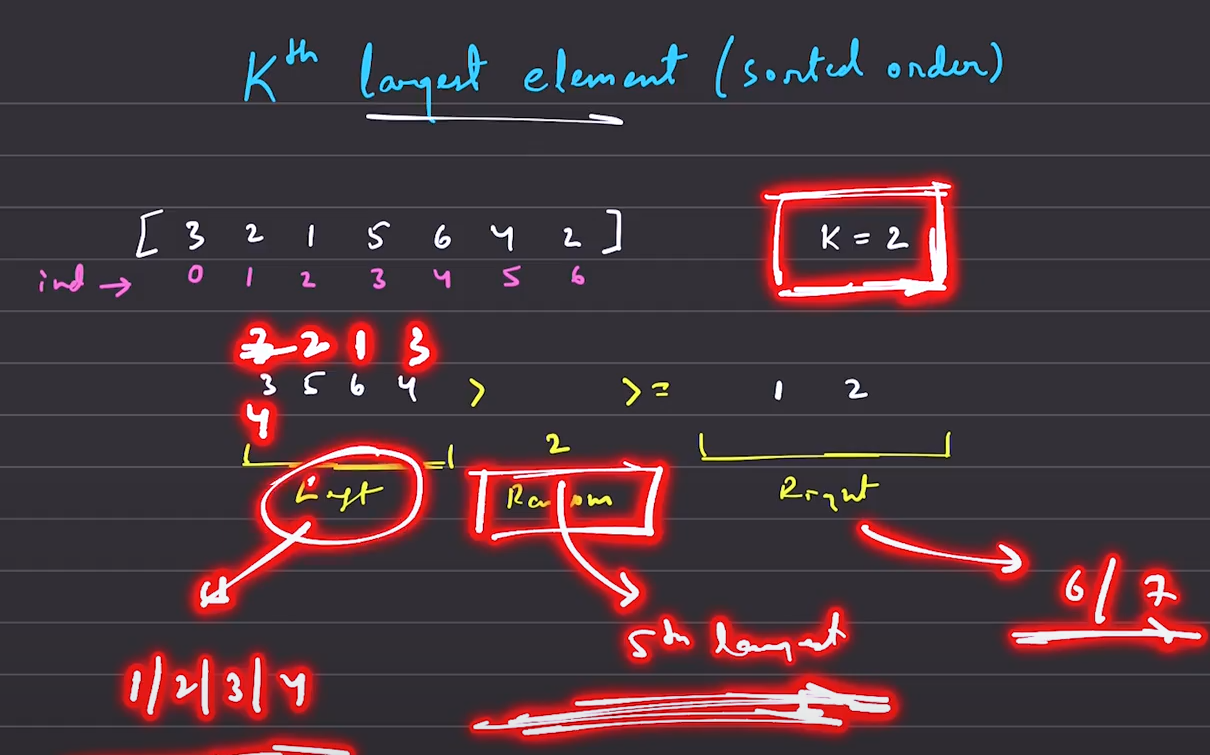 Kth largest element (sorted order)
[ 3 2 1 5 6 4 2 ]
K = 2
ind → 0 1 2 3 4 5 6
2 1 3
3 5 6 4 > >= 1 2
4
2
Left Random Right
6/7
5th largest
1/2/3/4